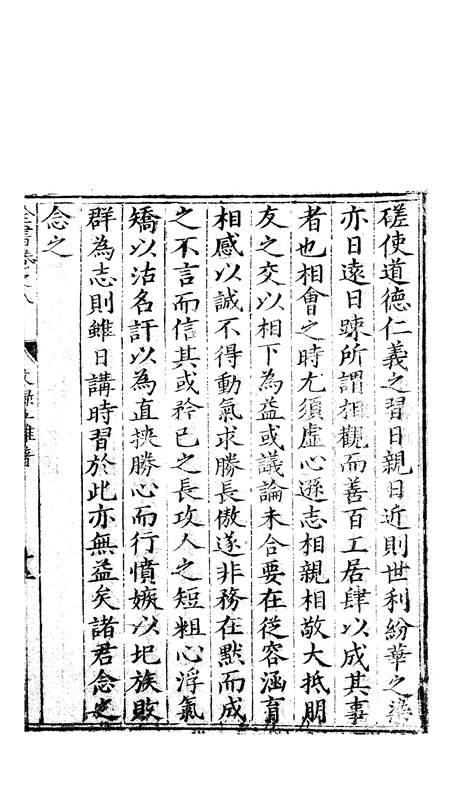 磋使道德仁義之習日親日近則世利紛華之染
亦日遠日踈所謂相觀而善百工居肆以成其事
者也相會之時尤須虛心遜志相親相敬大抵朋
友之交以相下為益或議論未合要在從容涵育
相感以誠不得動氣求勝長傲遂非務在默而成
之不言而信其或矜己之長攻人之短粗心浮氣
矯以沽名訐以為直挾勝心而行憤嫉以圯族敗
群為志則雖日講時習於此亦無益矣諸君念之
念之
全書卷之八